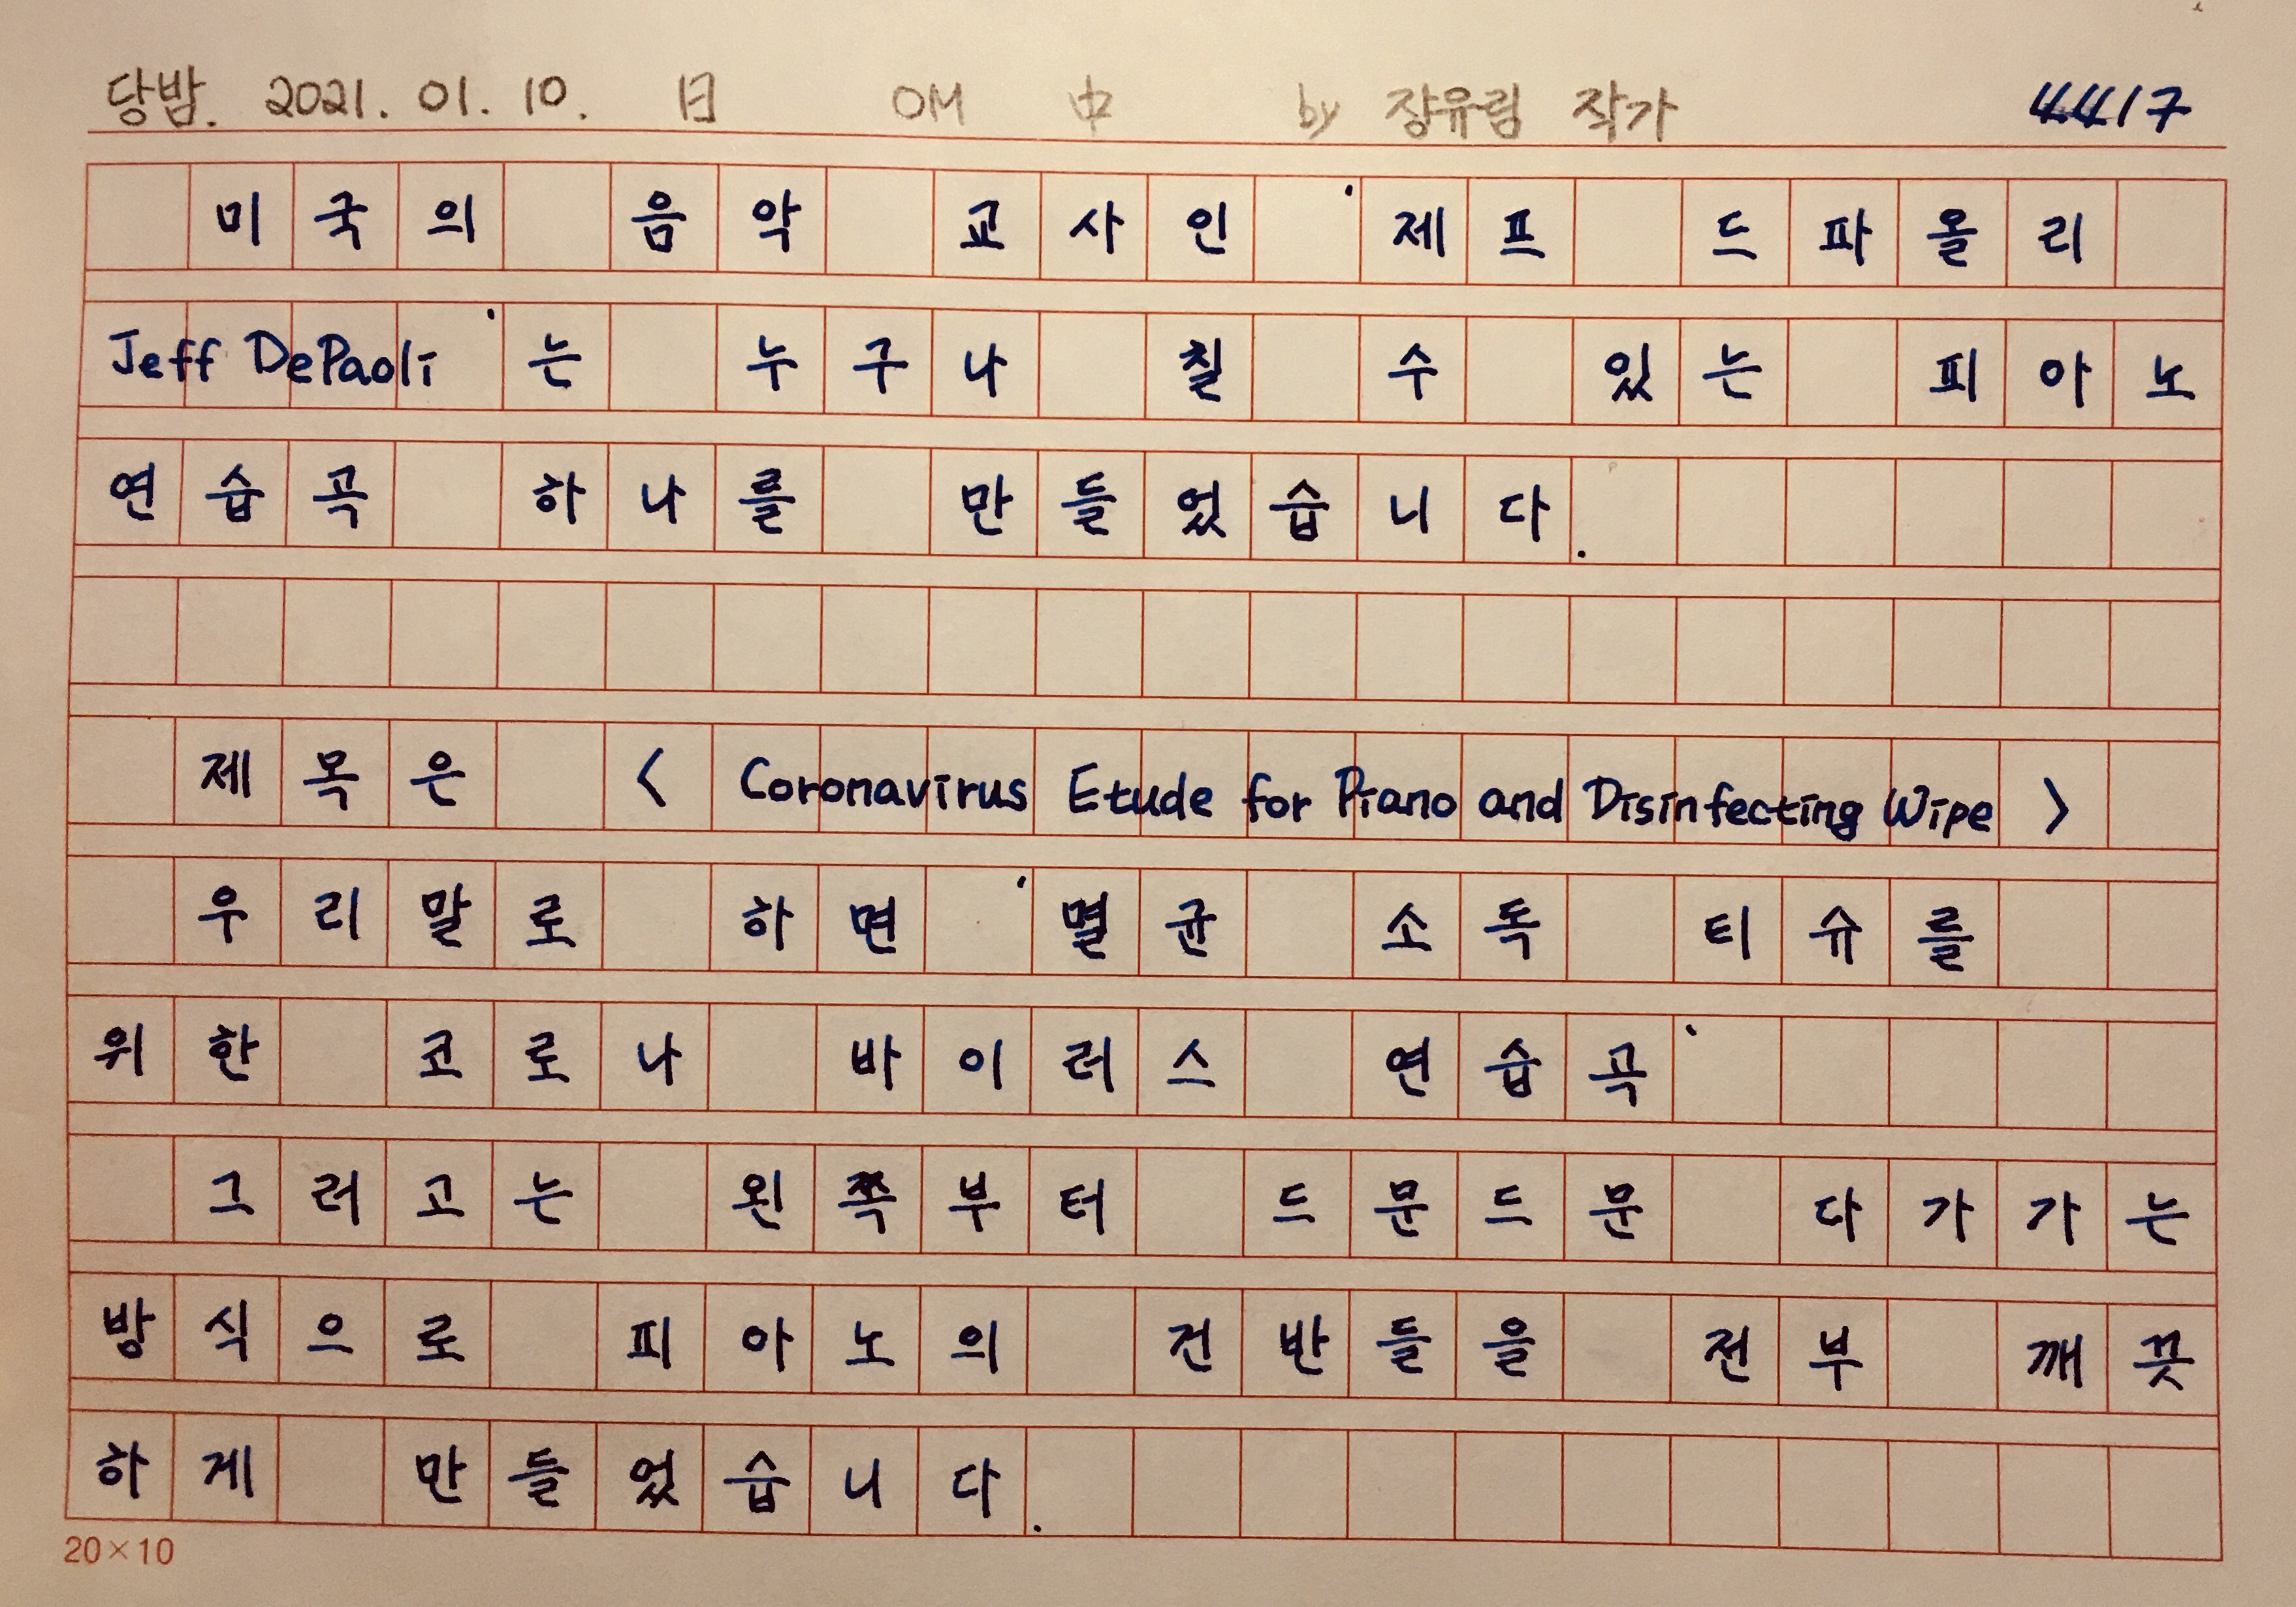 당밤. 2021. 01. 10. 日 OM 中 by 장유림 작가 4417
미국의 음악 교사인 '제프 드파올리
Jeff DePaoli'는 누구나 칠 수 있는 피아노
연습곡 하나를 만들었습니다.
제목은 < Coronavirus Etude for Piano and Disinfecting Wipe >
우리말로 하면 '멸균 소독 티슈를
위한 코로나 바이러스 연습곡'
그러고는 왼쪽부터 드문드문 다가가는
방식으로 피아노의 건반들을 전부 깨끗
하게 만들었습니다.
20×10